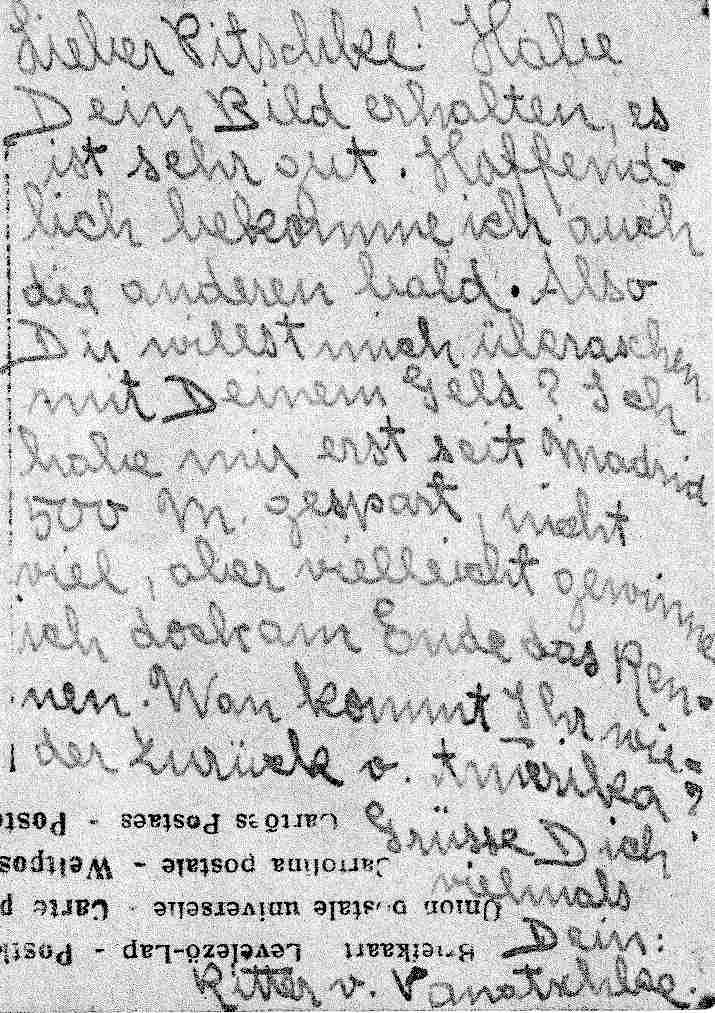 Lieber Pitschke! Habe
Dein Bild erhalten, es
ist sehr gut. Hoffend-
lich bekomme ich auch
die anderen bald. Also
Du willst mich überaschen
mit Deinem Geld? Ich
habe mir erst seit Madrid
500 M. gespart, nicht
viel, aber vielleicht gewinne
ich doch am Ende das Ren-
nen. Wan kommt Ihr wie-
der zurück v. Amerika?
Grüsse Dich
vielmals
Dein:
Ritter v.
Postk - Levelező-Lap - Briefkaart
Carte p - Union postale universelle
Weltpos - Carolina postale
Poste - Postaes